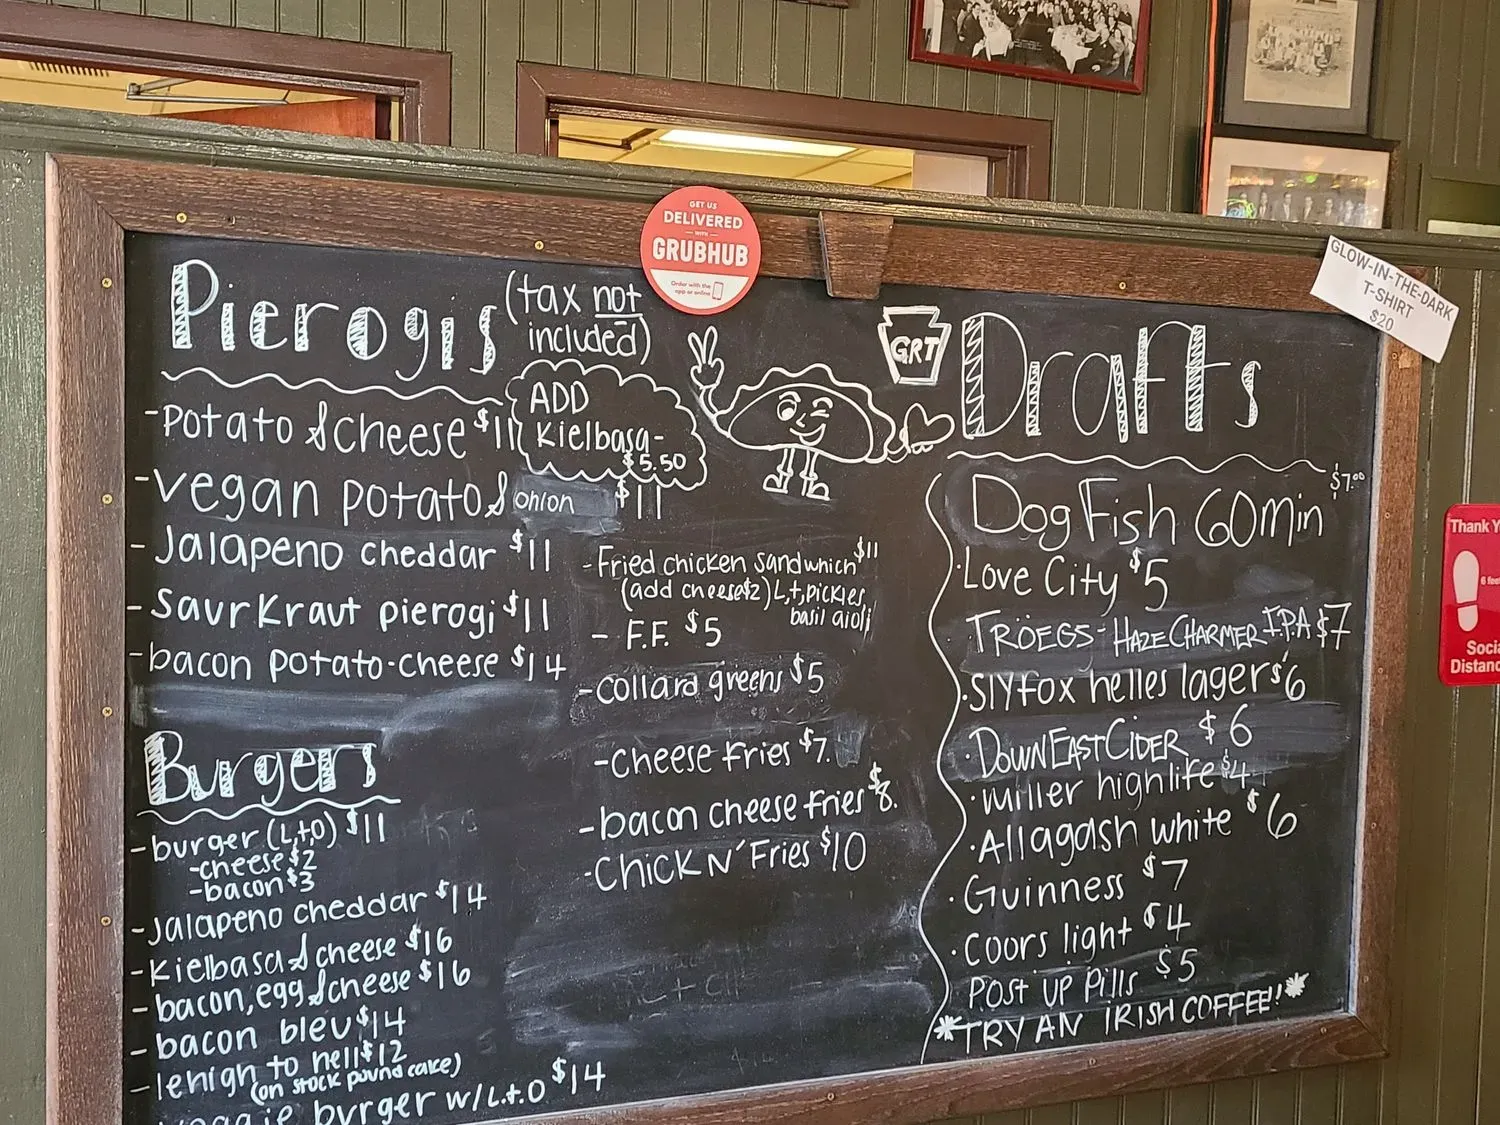 GET US
DELIVERED
WITH
GRUBHUB
Order with the
app or online
GLOW-IN-THE-DARK
T-SHIRT
$20
Pierogis (tax not
included)
ADD
Kielbasa-
$5.50
-Potato & cheese $11
-vegan potato & onion $11
-Jalapeno cheddar $11
-SaurKraut pierogi $11
-bacon potato-cheese $14
Burgers
-burger (L,t,O) $11
-cheese $2
-bacon $3
-Jalapeno cheddar $14
-Kielbasa & cheese $16
-bacon, egg & cheese $16
-bacon bleu $14
-lehigh to hell $12
(on stock pound cake)
veggie burger w/L.t.O $14
-Fried chicken sandwhich $11
(add cheese $2) L,t,pickles,
basil aioli
- F.F. $5
-collard greens $5
-cheese Fries $7.
-bacon cheese fries $8.
-CHICK N' Fries $10
GRT
Drafts
DogFish 60min $7.00
·Love City $5
TRÖEGS-HAZECHARMER I.P.A $7
·Slyfox helles lager $6
·DOWNEAST CIDER $6
·miller highlife $4
·Allagash white $6
·Guinness $7
·Coors light $4
POST UP Pills $5
*TRY AN IRISH COFFEE!!*
Thank Y
6 fee
Socia
Distanc